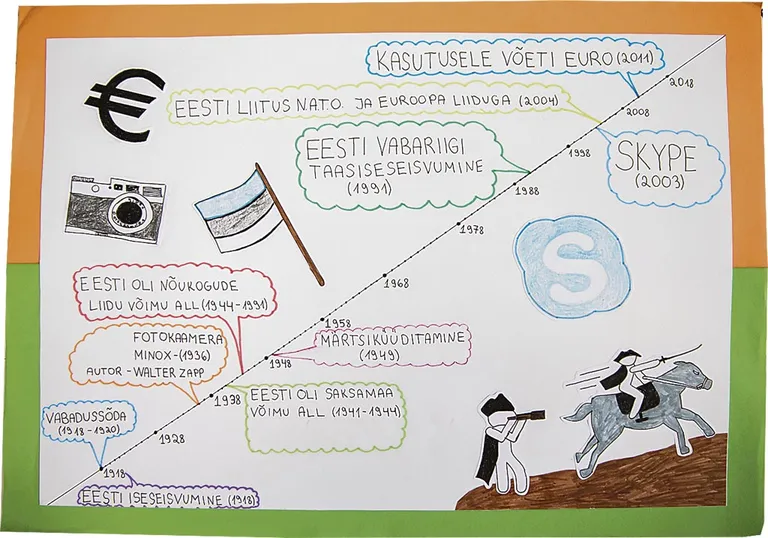 KASUTUSELE VÕETI EURO (2011)
EESTI LIITUS N.A.T.O. JA EUROOPA LIIDUGA (2004)
EESTI VABARIIGI
TAASISESEISVUMINE
(1991)
SKYPE
(2003)
2018
2008
1998
1988
1978
1968
1958
1948
1938
1928
1918
S
EESTI OLI NÕUKOGUDE
LIIDU VÕIMU ALL (1944-1991)
MÄRTSIKÜÜDITAMINE
(1949)
FOTOKAAMERA
MINOX-(1936)
AUTOR - WALTER ZAPP
EESTI OLI SAKSAMAA
VÕIMU ALL (1941-1944)
VABADUSSÕDA
(1918-1920)
EESTI ISESEISVUMINE (1918)